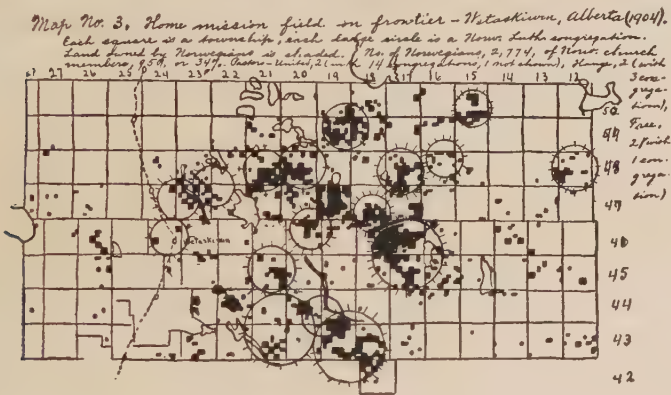 Map No. 3. Home mission field on frontier – Wetaskiwin, Alberta (1904).
Each square is a township; each large circle is a Norw. Luth congregation.
Land owned by Norwegians is shaded. No. of Norwegians, 2,774, of Norw. church
members, 950, or 34%. Pastors – United, 2 (with 14 congregations, 1 not shown), Hauge, 2 (with
3 con-
grega-
tions),
Free,
2 (with
1 con-
grega-
tion)
27 26 25 24 23 22 21 20 19 18 17 16 15 14 13 12
50
49
48
47
46
Wetaskiwin
45
44
43
42